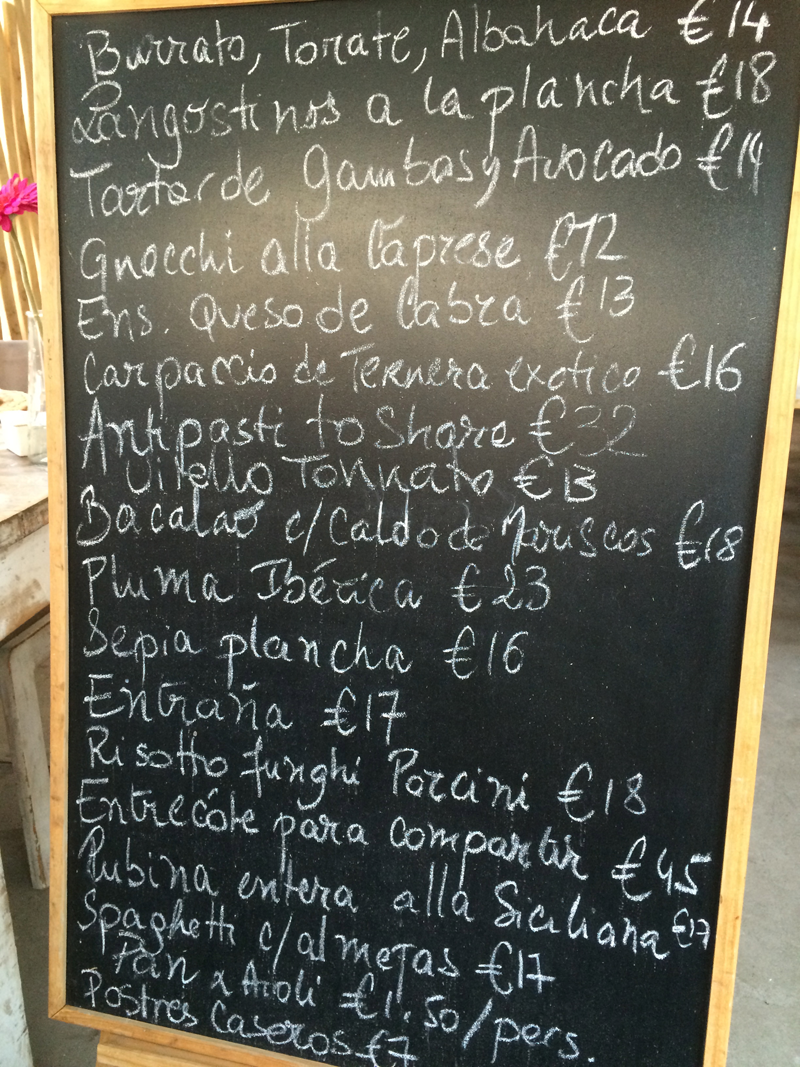 Burrata, Tomate, Albahaca €14
Langostinos a la plancha €18
Tartar de gambas y Avocado €14
Gnocchi alla Caprese €12
Ens. Queso de Cabra €13
Carpaccio de Ternera exotico €16
Antipasti to Share €32
Vitello Tonnato €13
Bacalao c/ Caldo de Mariscos €18
Pluma Ibérica €23
Sepia plancha €16
Entraña €17
Risotto funghi Porcini €18
Entrecôte para compartir €45
Lubina entera alla Siciliana €17
Spaghetti c/ almejas €17
Pan x Aioli €1.50/pers.
Postres Caseros €7